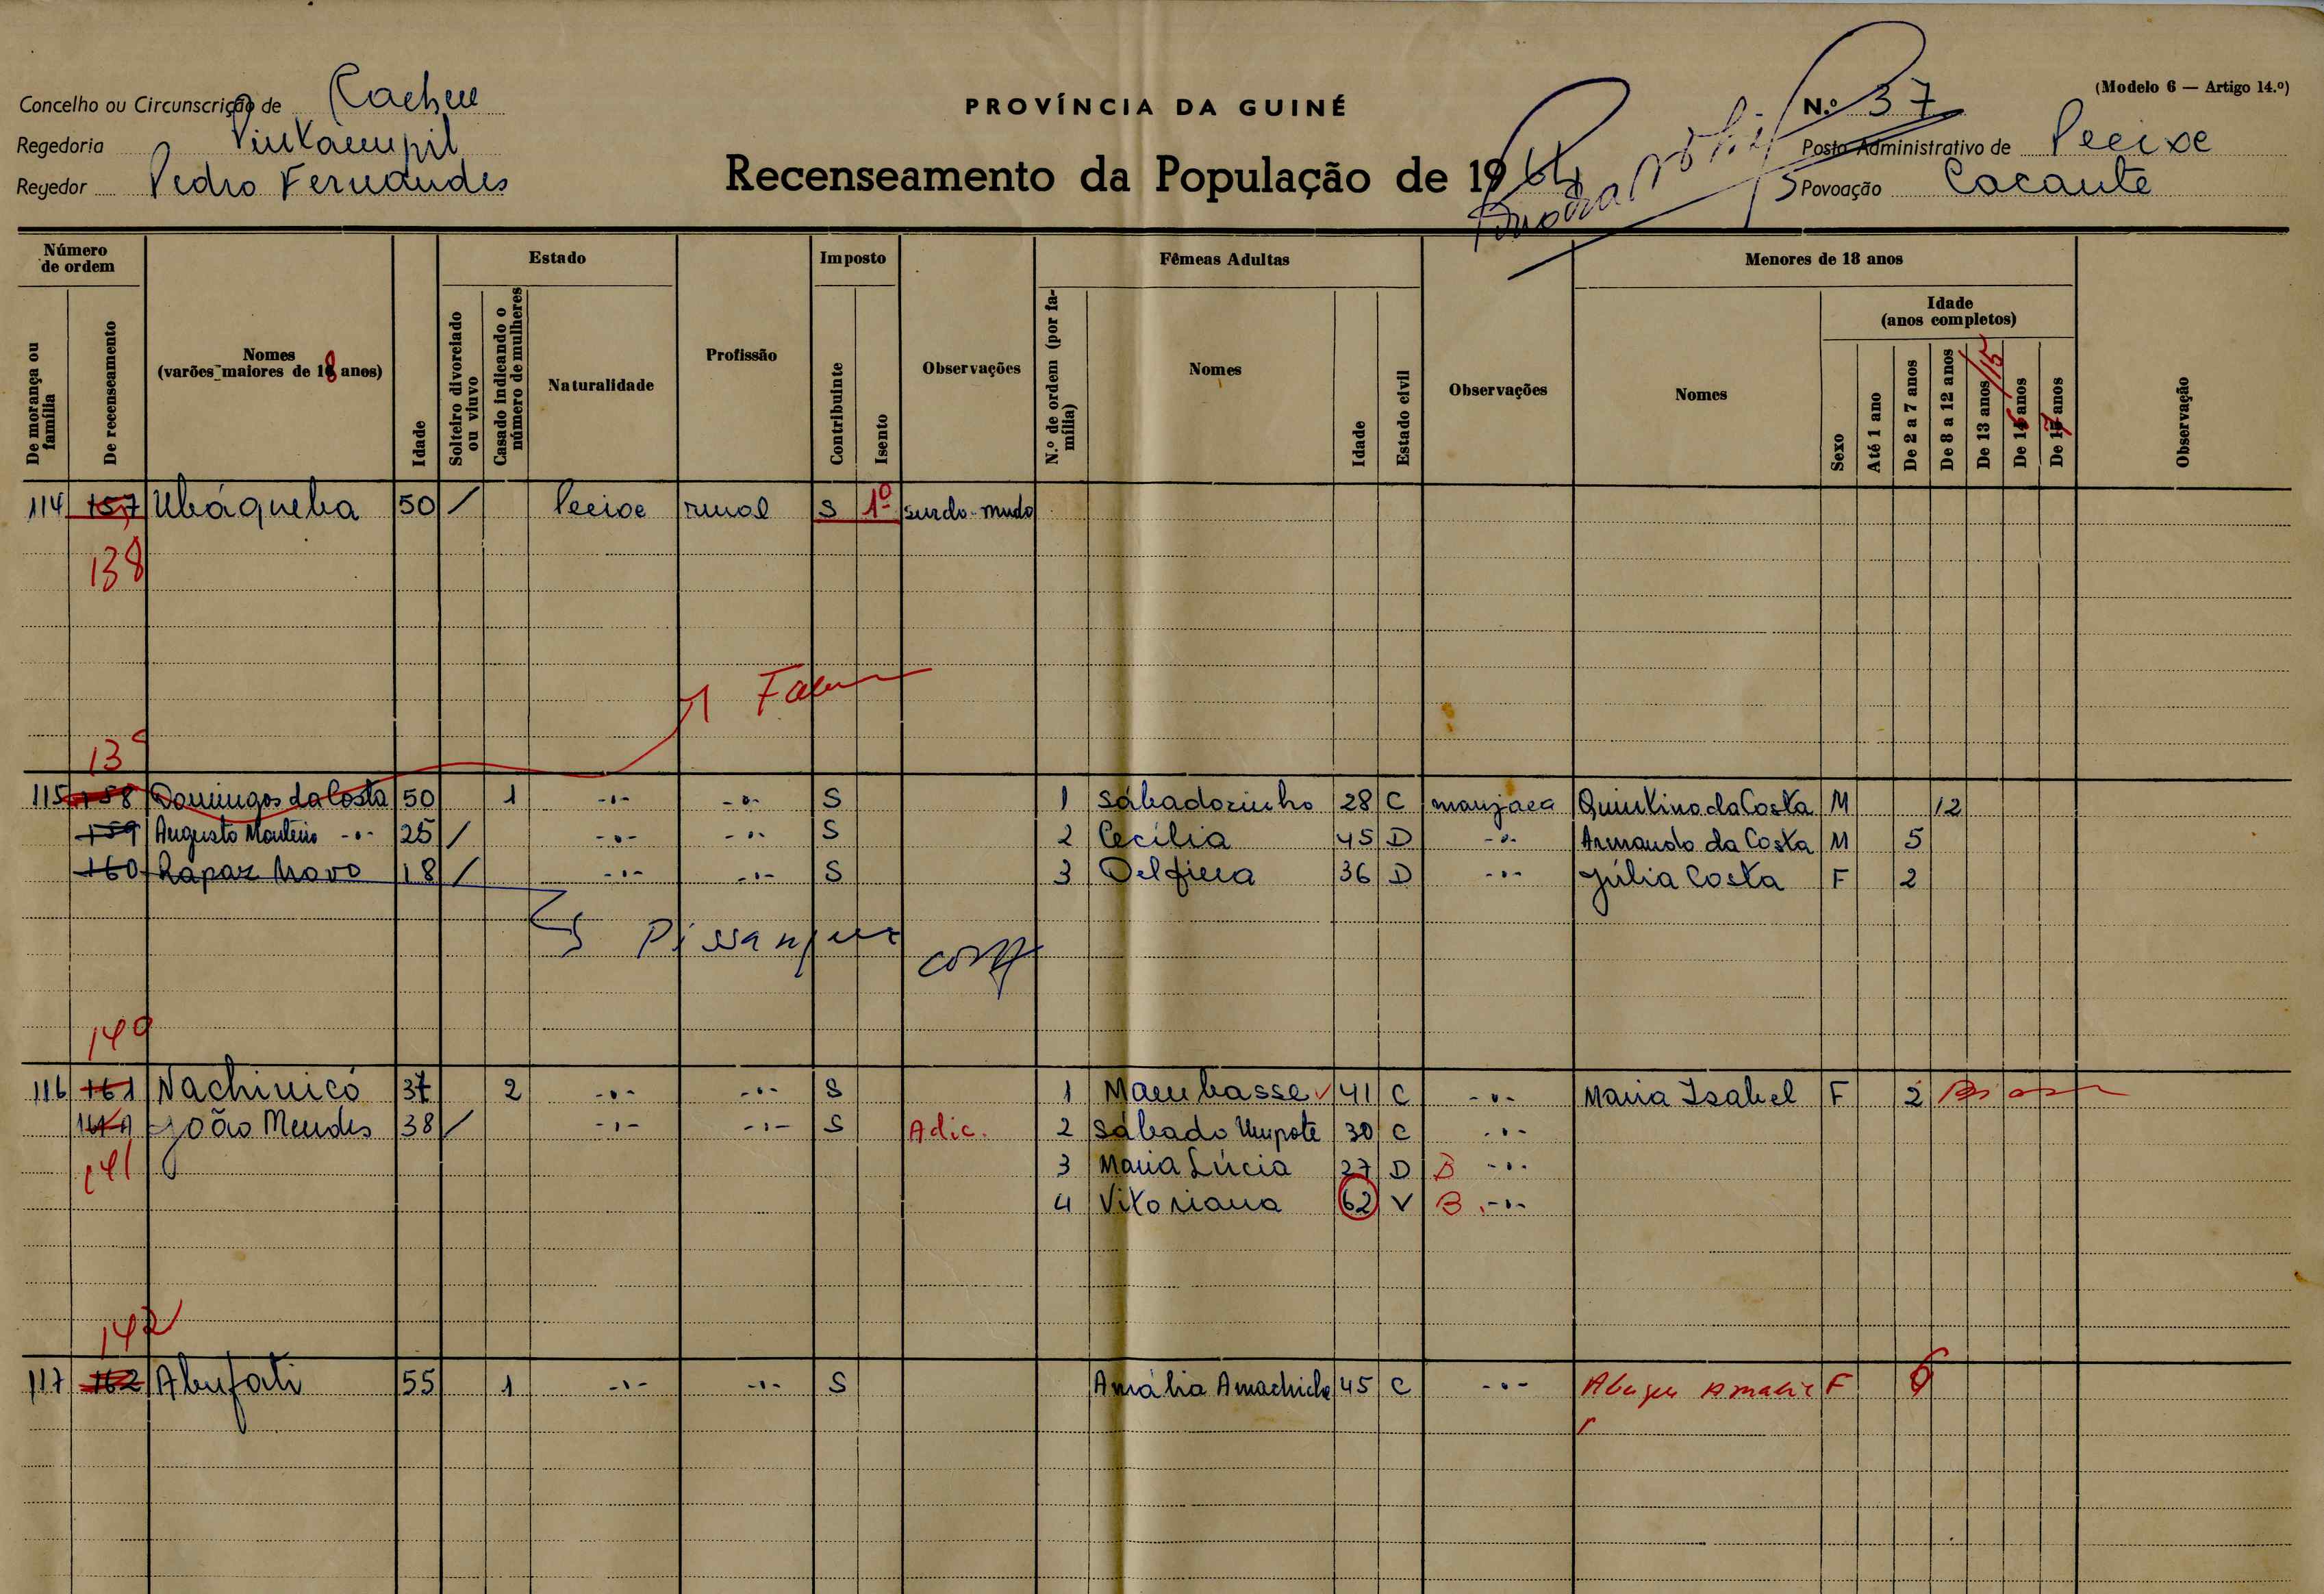 Concelho ou Circunscrição de Cacheu
PROVÍNCIA DA GUINÉ
N.º 37
(Modelo 6 — Artigo 14.º)
Regedoria
Posto Administrativo de Pecixe
Regedor Pedro Fernandes
Recenseamento da População de 1964
Povoação Cacante
Número de ordem
De morança ou família
De recenseamento
Nomes (varões maiores de 18 anos)
Idade
Estado
Solteiro divorciado ou viuvo
Casado indicando o número de mulheres
Naturalidade
Profissão
Imposto
Contribuinte
Isento
Observações
Fêmeas Adultas
N.º de ordem (por família)
Nomes
Idade
Estado civil
Observações
Menores de 18 anos
Nomes
Sexo
Idade (anos completos)
Até 1 ano
De 2 a 7 anos
De 8 a 12 anos
De 13 anos /15
De 16 anos
De 17 anos
Observação
114 157 Ubáqueba 50 / Pecixe rural S 1º surdo-mudo
138
Falec
13
115 158 Domingos da Costa 50 1 -"- -"- S 1 Sábadozinho 28 C manjaca Quintino da Costa M 12
159 Augusto Monteiro -"- 25 / -"- -"- S 2 Cecília 45 D -"- Armando da Costa M 5
160 Rapaz Novo 18 / -"- -"- S 3 Delfiera 36 D -"- Júlia Costa F 2
140
116 161 Nachinicó 37 2 -"- -"- S 1 Mambasse 41 C -"- Maria Isabel F 2
João Mendes 38 / -"- -"- S Adic. 2 Sábado Umpote 30 C -"-
141 3 Maria Lúcia 27 D B -"-
4 Vitoriana 62 V B -"-
142
117 162 Abufati 55 1 -"- -"- S Amália Amachiche 45 C -"- F 6